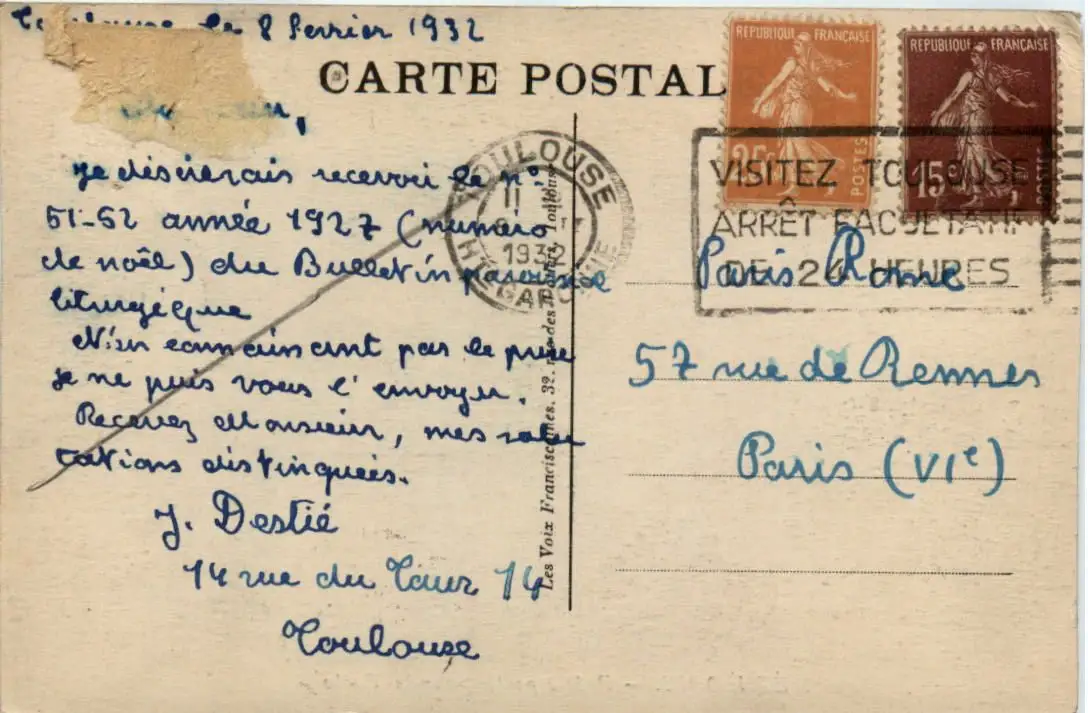 Toulouse le 8 Fevrier 1932
CARTE POSTAL
Je désirerais recevoir le n°
51-52 année 1927 (numéro
de noël) du Bulletin paroissial
liturgique
N'en connaissant pas le prix
je ne puis vous l'envoyer.
Recevez Monsieur, mes salu
tations distinguées.
J. Destié
14 rue du Taur 14
Toulouse
Les Voix Franciscaines, 32, rue des Toulouse
REPUBLIQUE FRANÇAISE
25c
POSTES
REPUBLIQUE FRANÇAISE
15c
POSTES
TOULOUSE
11
1932
HTE GARONNE
VISITEZ TOULOUSE
ARRÊT FACULTATIF
DE 24 HEURES
Paris Rome
57 rue de Rennes
Paris (VIe)